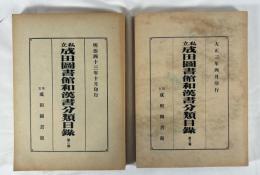 明治四十三年十月印行
私立成田圖書館和漢書分類目錄
成田圖書館
大正三年四月印行
私立成田圖書館和漢書分類目錄
成田圖書館